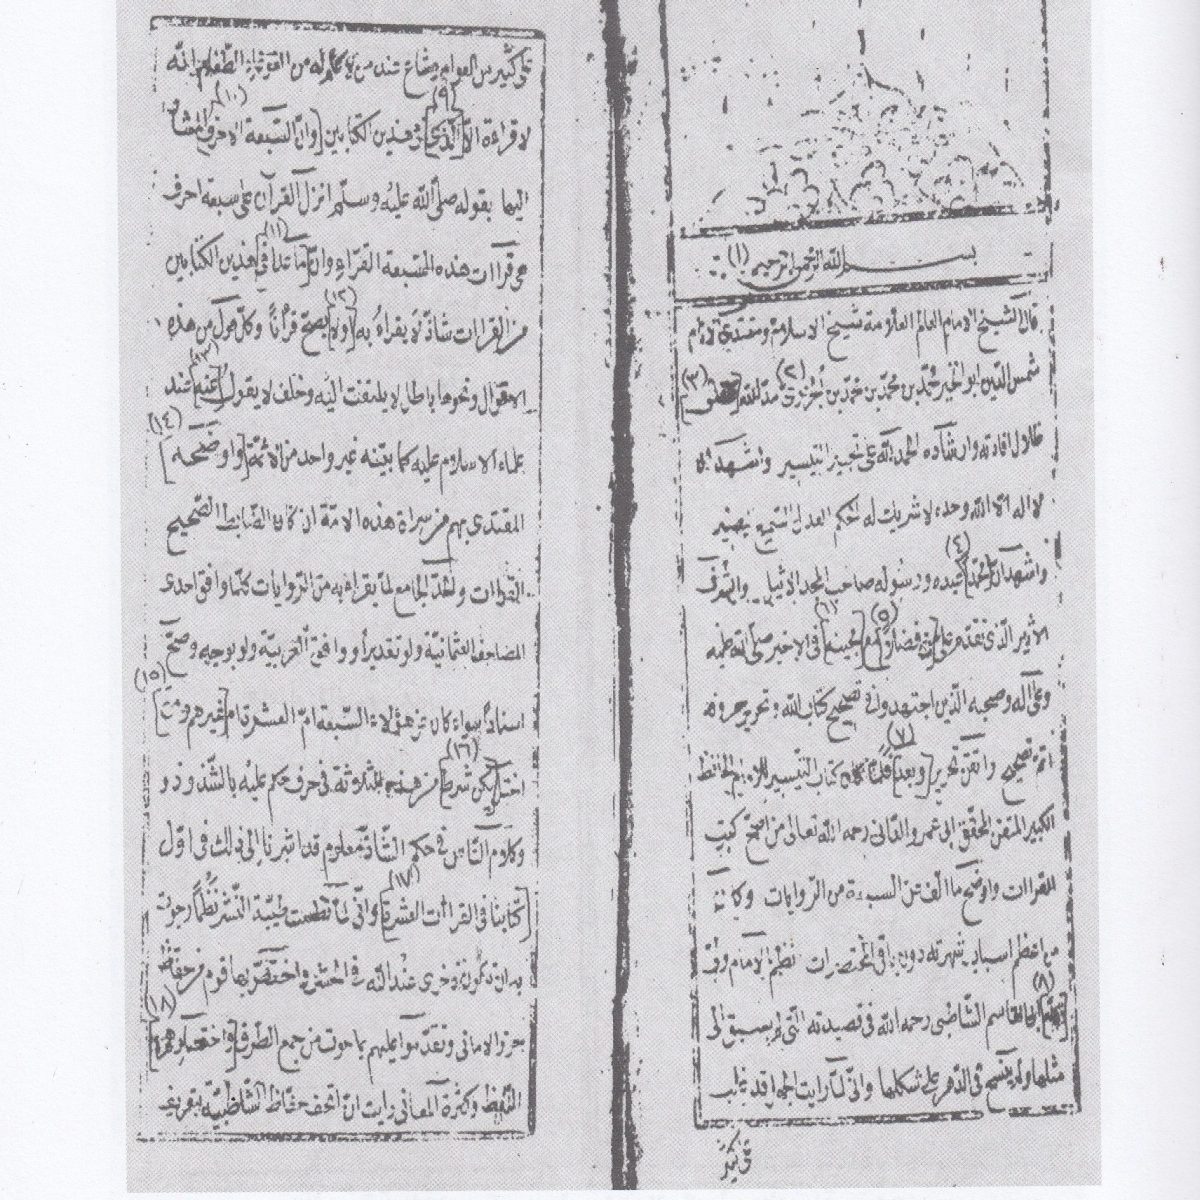 بسم الله الرحمن الرحيم (١)
قال الشيخ الامام العالم العلامة شيخ الاسلام ومقتدى الانام
شمس الدين ابو الخير محمد بن محمد بن محمد بن الجزرى (٢) مد الله [ (٣)
ظلال افادته وارشاده الحمد لله على تحبير التيسير واشهد ان
لا اله الا الله وحده لا شريك له الحكم العدل السميع البصير
واشهد ان [محمدا] (٤) عبده ورسوله صاحب المجد الاثيل والشرف
الاثير الذى تقدم على فضلا (٥) [لمجيئه] (٦) فى الاخير صلى الله عليه
وعلى آله وصحبه الذين اجتهدوا فى تصحيح كتاب الله وتحرير حروفه
اتم تصحيح واتقن تحرير [وبعد] (٧) فلما كان كتاب التيسير للامام الحافظ
الكبير المتقن المحقق ابى عمرو الدانى رحمه الله تعالى من اصح كتب
القراات واوضح ما الف عن السبعة من الروايات وكان
من اعظم اسباب شهرته دون باقى المختصرات نظم الامام ولى
الله ابى القاسم (٨) الشاطبى رحمه الله فى قصيدته التى لم يسبق الى
مثلها ولم ينسج فى الدهر على شكلها وانى لما رايت الجهل قد غلب
على كثير
على كثير من العوام وشاع عند من لا علم له من الغوغاء الطغام انه
لا قراءة الا [الذى] (٩) فى هذين الكتابين [وان السبعة الاحرف المشار (١٠)
اليها بقوله صلى الله عليه وسلم انزل القرآن على سبعة احرف
هى قراآت هذه السبعة القراء وان [ما عدا فى] (١١) هذين الكتابين
من القراات شاذ لا يقراء به [ولا] (١٢) يصح قرأنا وكل قول من هذه
الاقوال ونحوها باطل لا يلتفت اليه وخلف لا يقول [عنه] (١٣) عند
علماء الاسلام عليه كما بينه غير واحد من الائمة [واوضحه] (١٤)
المقتدى بهم من سراة هذه الامة ان كان الضابط الصحيح
القراات والحد الجامع لما يقراء به من الروايات كلما وافق احدى
المصاحف العثمانية ولو تقديرا ووافق العربية ولو بوجه وصح
اسنادا سواء كان عن هؤلاء السبعة ام العشرة ام [غيرهم ومتى] (١٥)
اختل [ركن شرط] (١٦) من هذه الثلاثة فى حرف حكم عليه بالشذوذ و
وكلام الناس فى حكم الشاذ معلوم قد اشرنا الى ذلك فى اول
[كتابنا فى القراأت العشرة] (١٧) وانى لما نظمت طيبة النشر نظما رجوت
به ان تكون ذخرى عند الله فى الحشر اختصر بها قوم من حفاظ
حرز الامانى وتقدموا عليهم بما حوت من جمع الطرق [واختصار (١٨)
اللفظ وكثرة المعانى رايت ان اتحف حفاظ الشاطبية بتعريف